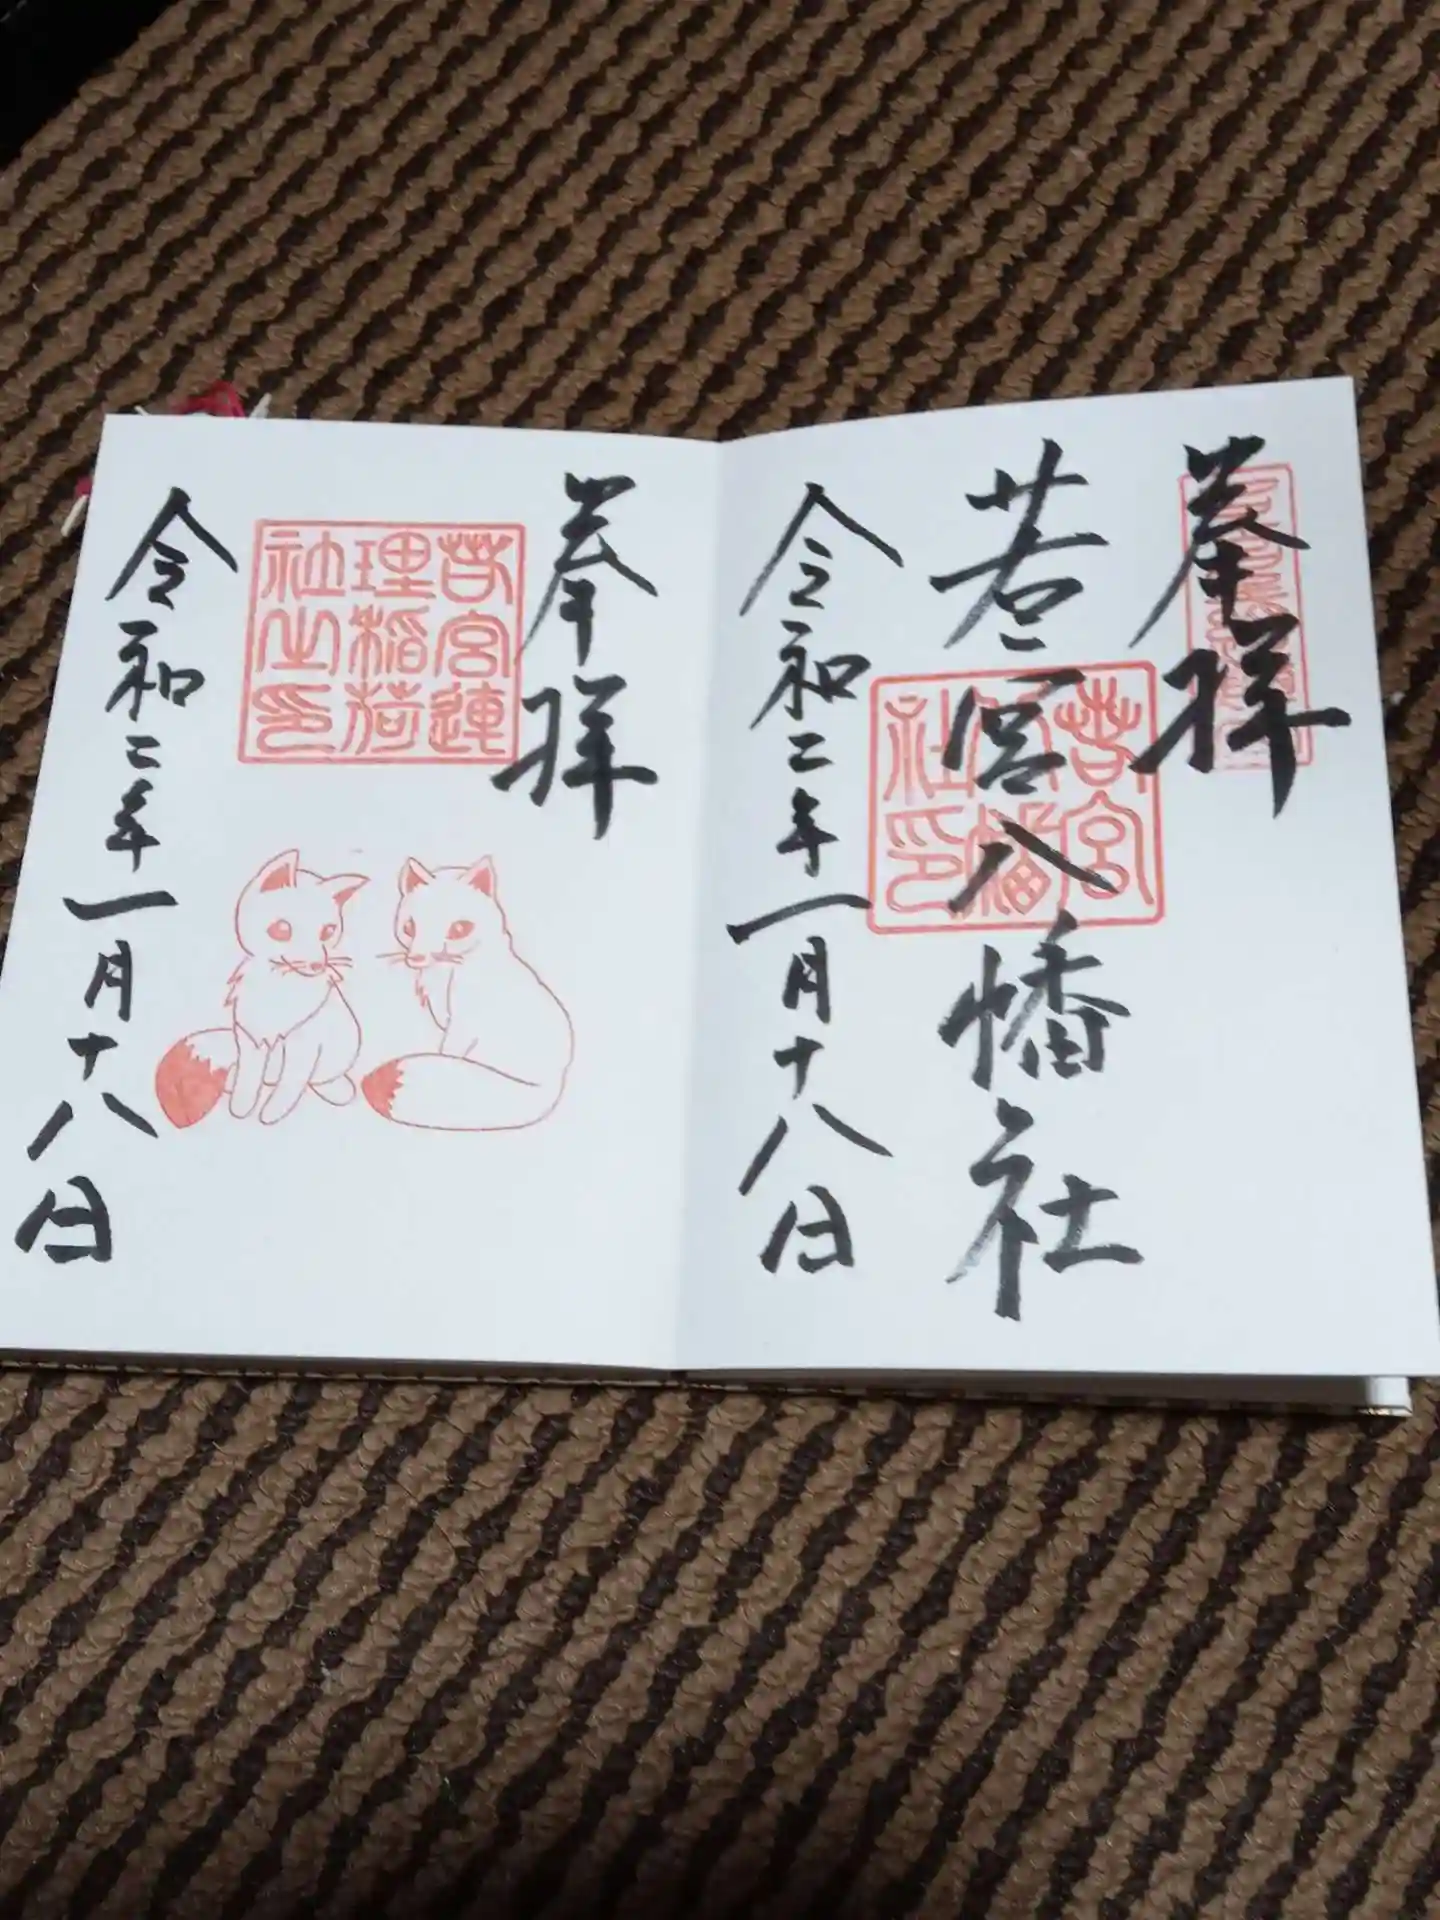 奉拝
若宮八幡社
若宮八幡社印
令和二年一月十八日
奉拝
若宮連理稲荷社之印
令和二年一月十八日